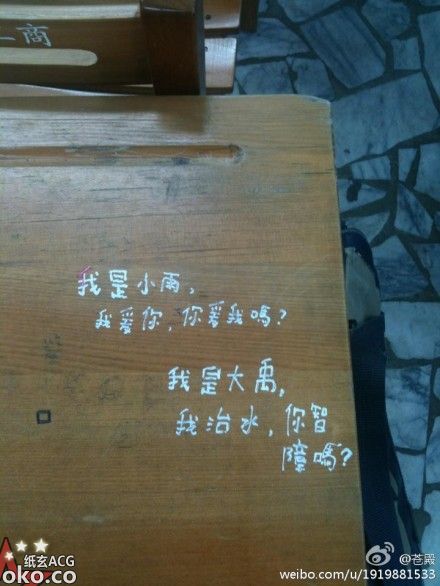 商
我是小雨，
我爱你，你爱我嗎？
我是大禹，
我治水，你智
障嗎？
纸玄ACG
oko.co
@苍殿
weibo.com/u/1919881533